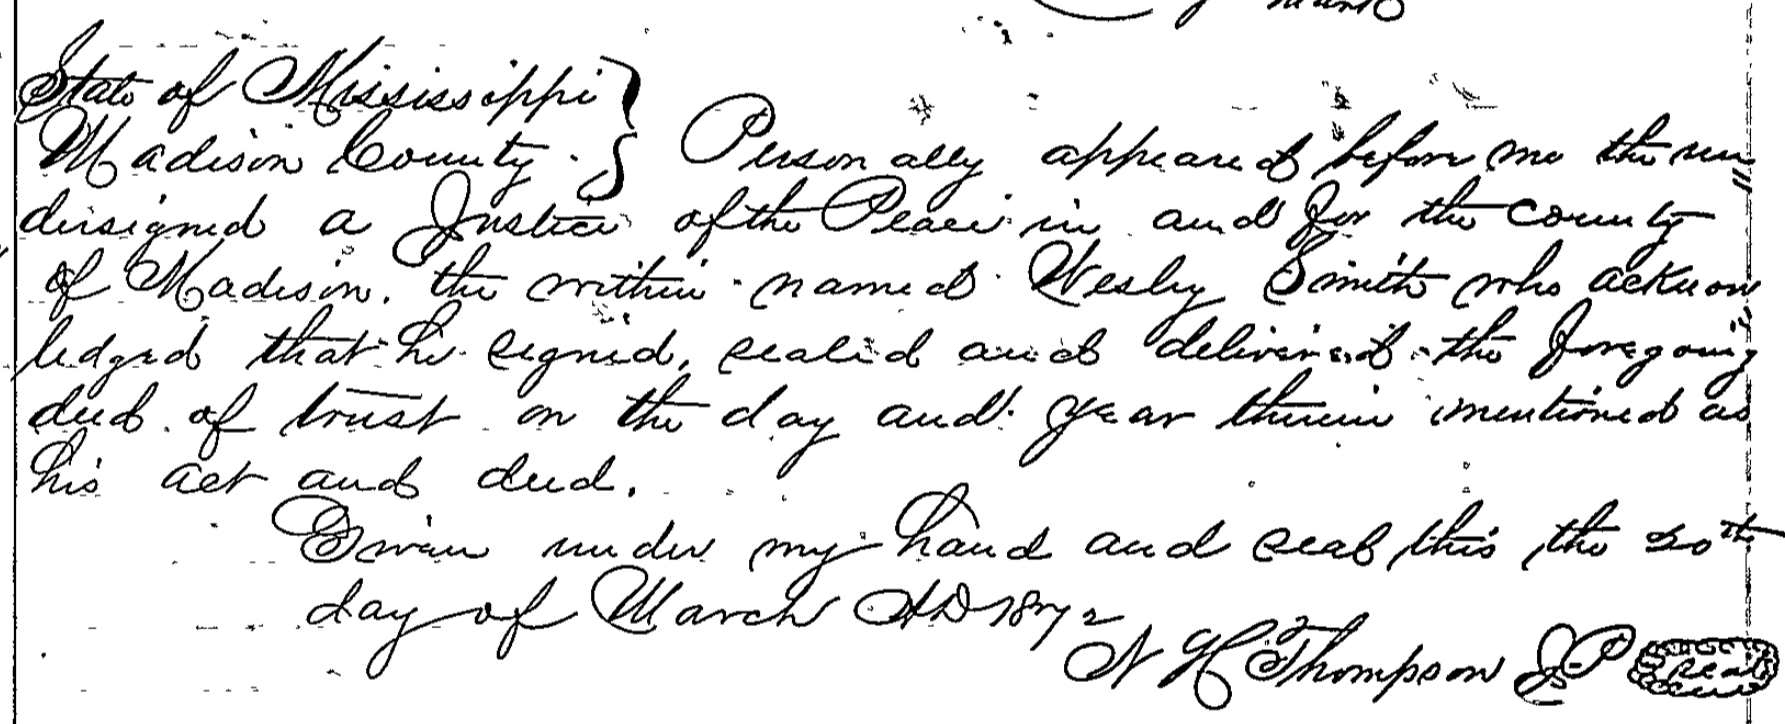 mark
State of Mississippi }
Madison County. } Personally appeared before me the un"
dersigned a Justice of the Peace in and for the county
of Madison. the within named Wesley Smith who acknow"
ledged that he signed, sealed and delivered the foregoing
deed of trust on the day and year therein mentioned as
his act and deed.
Given under my hand and seal this the 20th
day of March AD 1872
N H Thompson J.P. seal